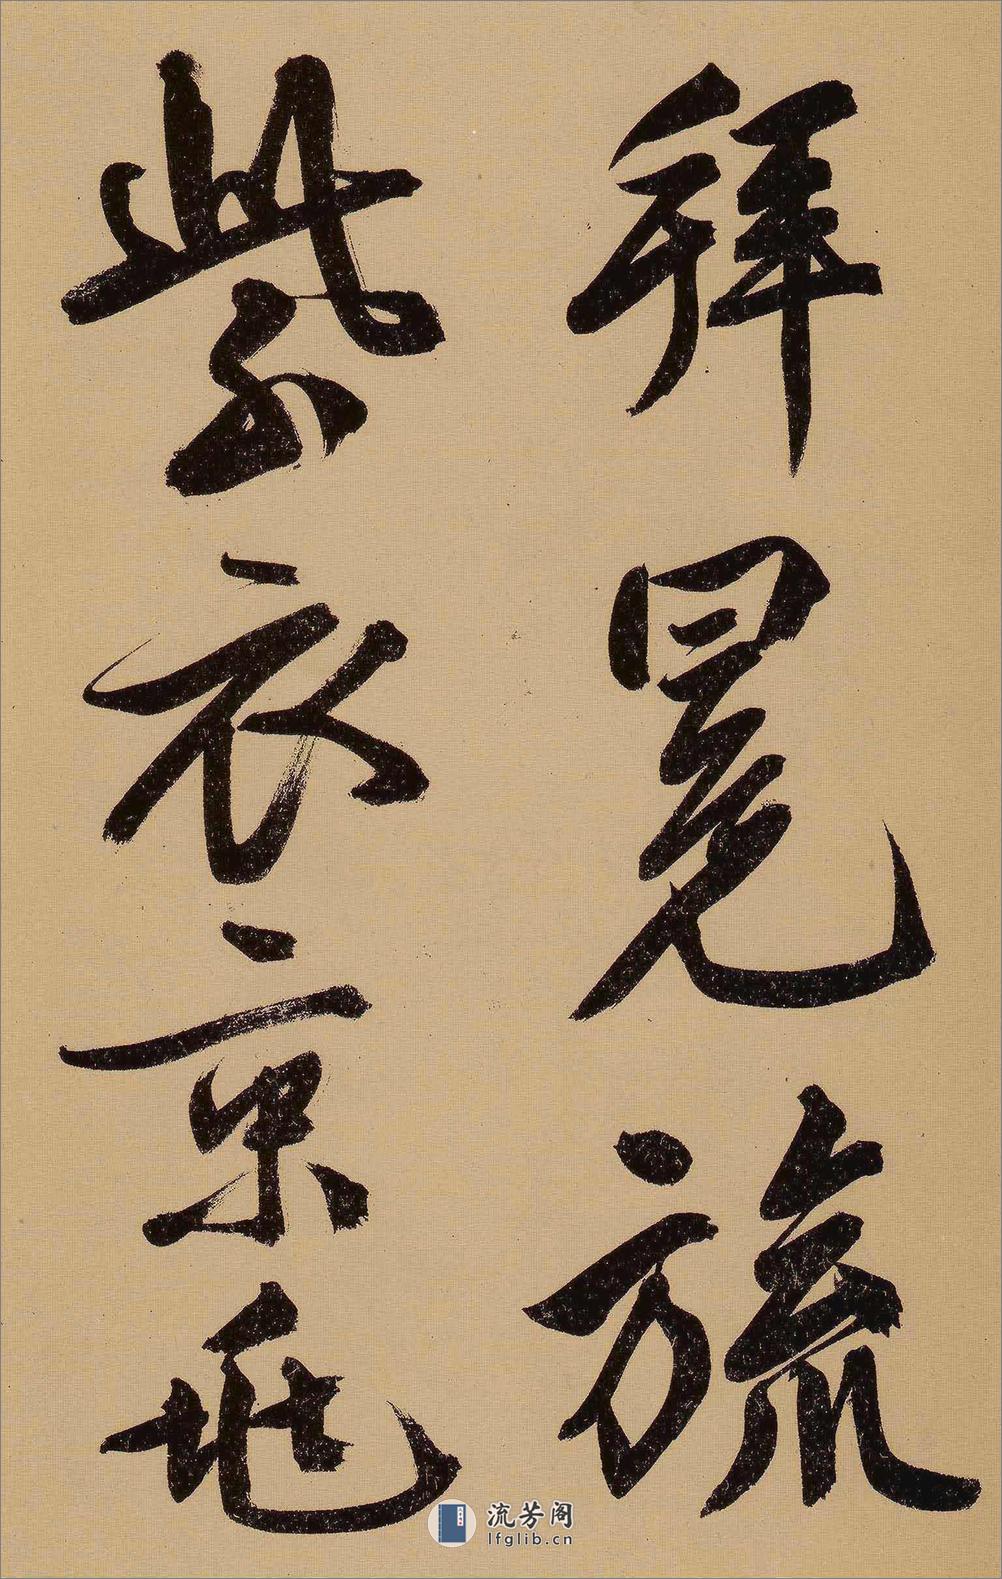 拜冕旒
紫衣京
流芳阁
lfglib.cn